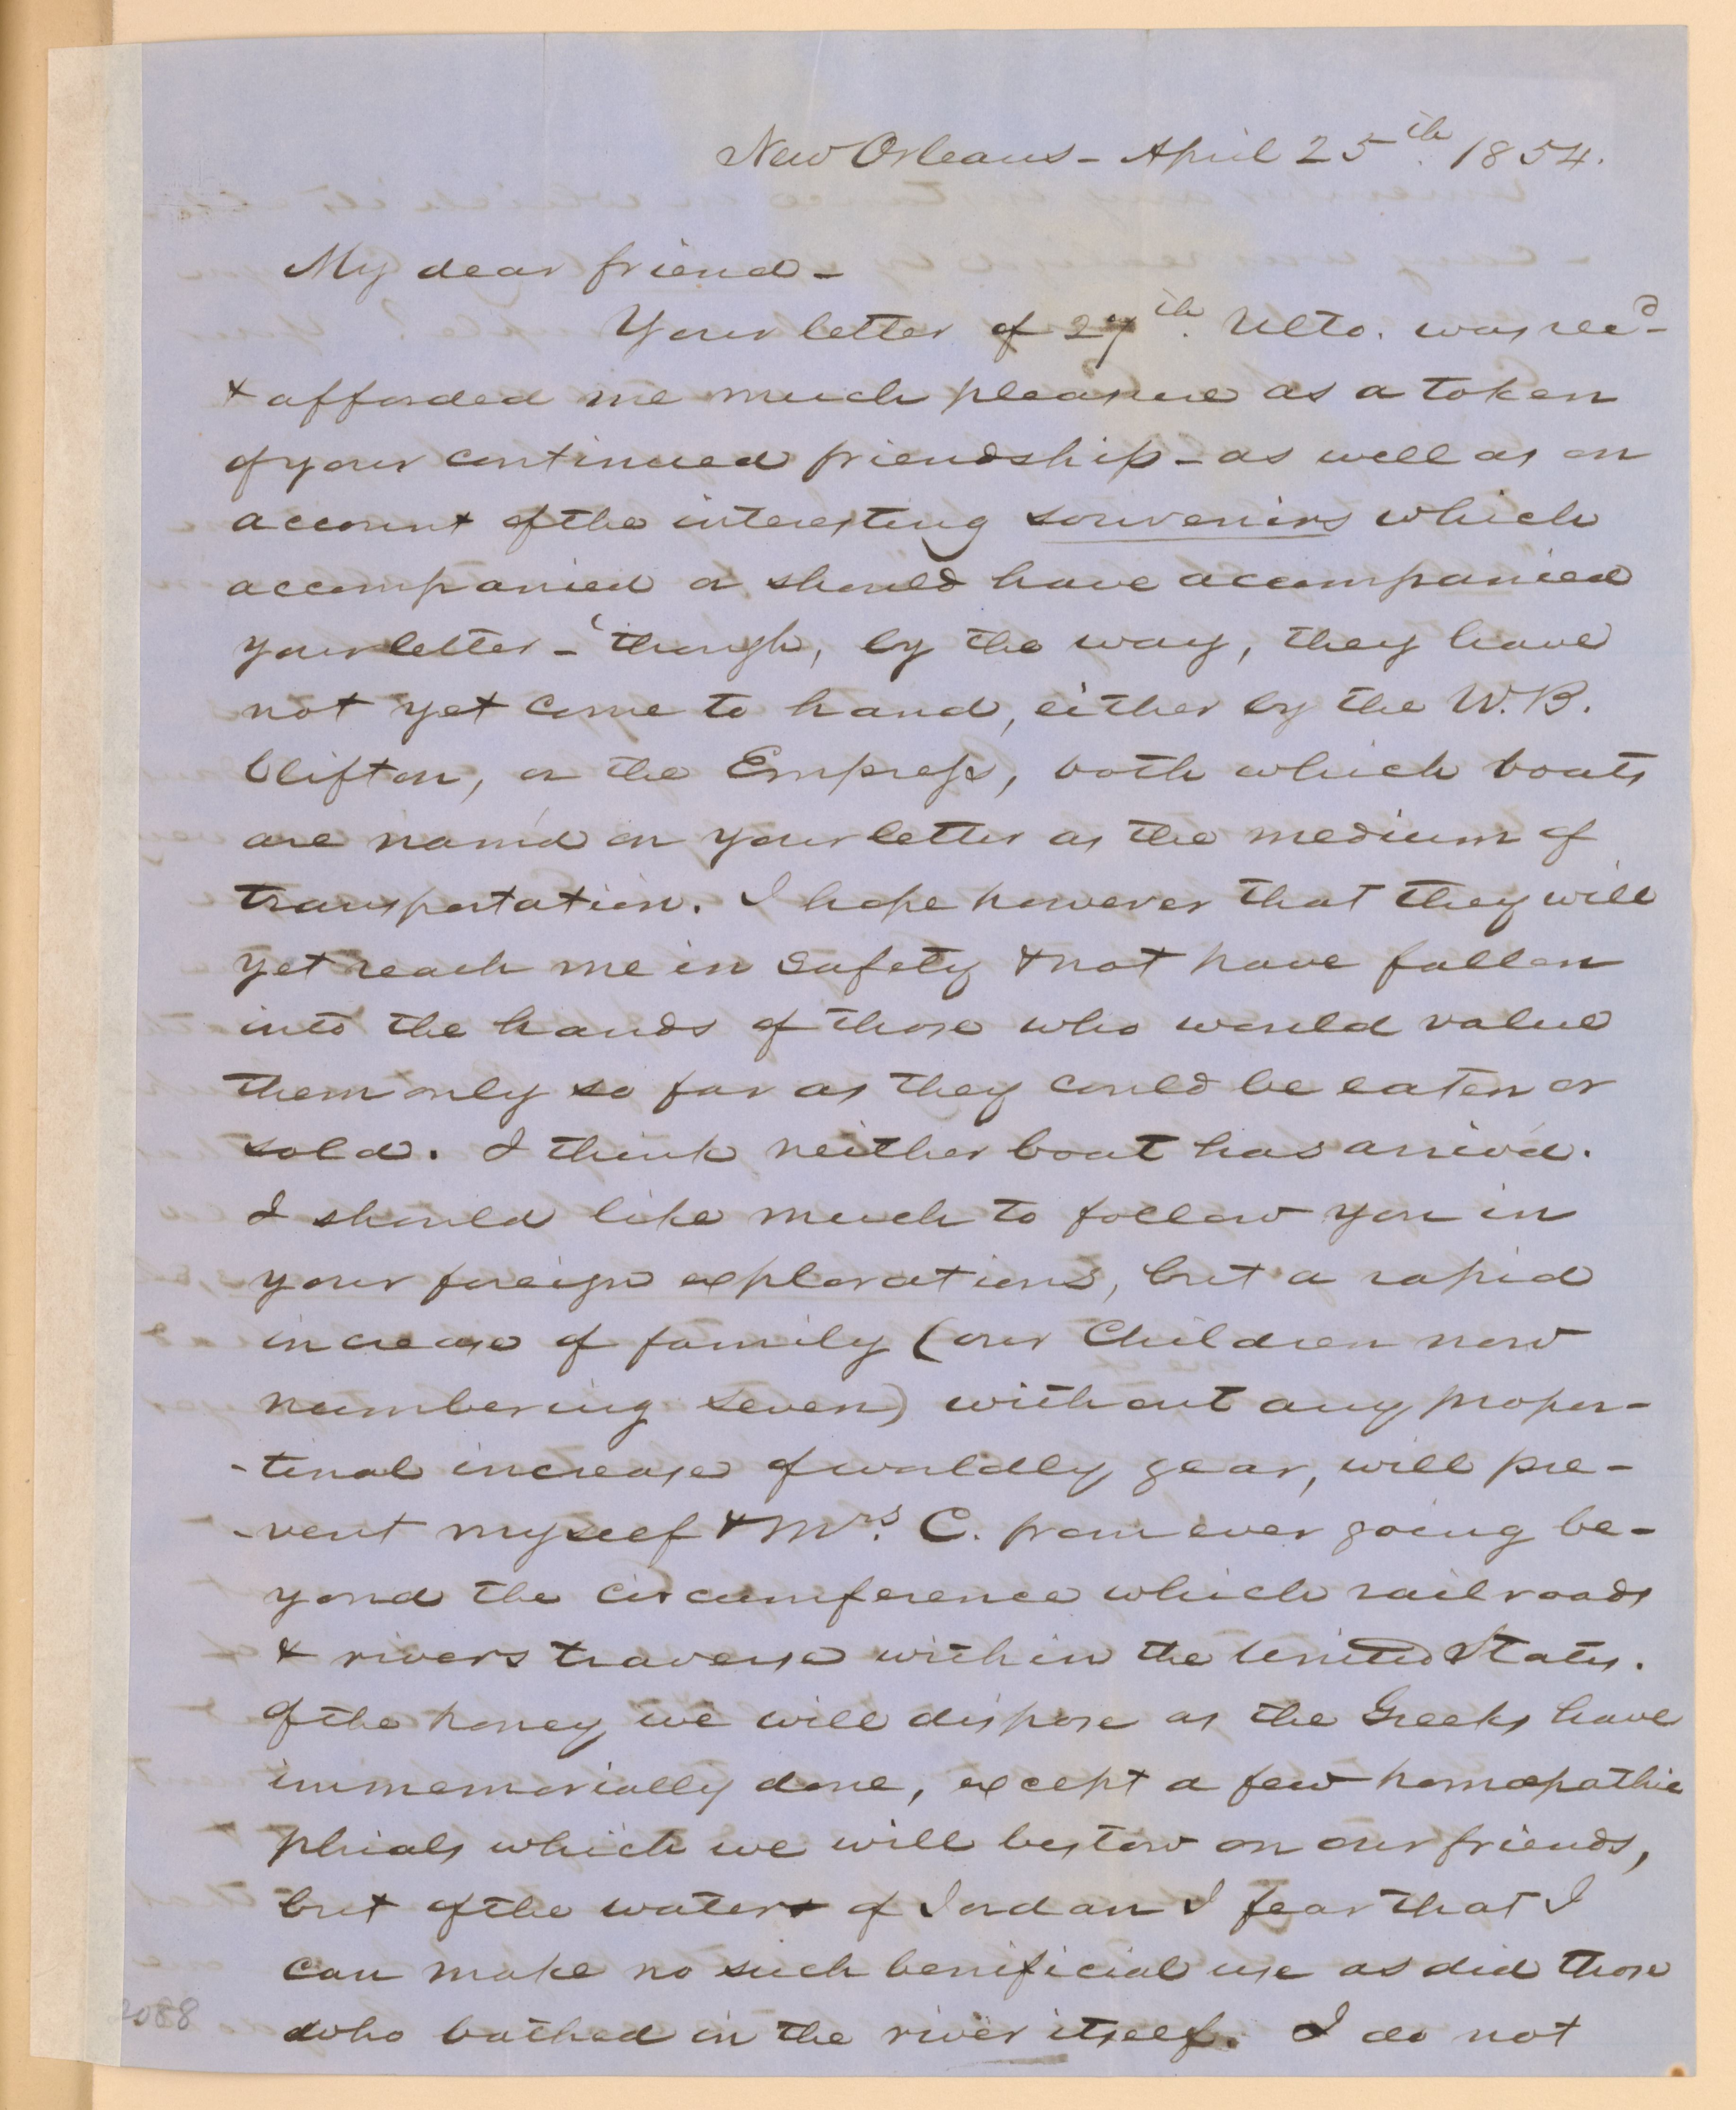 New Orleans - April 25th. 1854.
My dear friend -
Your letter of 27th. Ulto. was recd -
& afforded me much pleasure as a token
of your continued friendship - as well as on
account of the interesting souvenirs which
accompanied or should have accompanied
your letter - 'though, by the way, they have
not yet come to hand, either by the W. B.
Clifton, or the Empress, both which boats
are nam'd on your letter as the medium of
transportation. I hope however that they will
yet reach me in safety & not have fallen
into the hands of those who would value
them only so far as they could be eaten or
sold. I think neither boat has arriv'd.
I should like much to follow you in
your foreign explorations, but a rapid
increase of family (our Children now
numbering seven) without any propor-
-tinal increase of worldly gear, will pre-
-vent myself & Mrs. C. from ever going be-
yond the circumference which railroads
& rivers traverse within the United States.
Of the honey we will dispose as the Greeks have
immemorially done, except a few homœpathic
phials which we will bestow on our friends,
but of the waters of Jordan I fear that I
can make no such benificial use as did those
who bathed in the river itself. I do not
2088